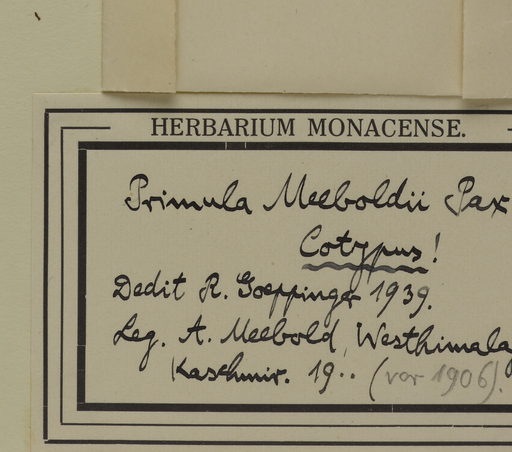 HERBARIUM MONACENSE.
Primula Meeboldii Pax
Cotypus!
Dedit R. Goeppinger 1939.
Leg. A. Meebold, Westhimala
Kaschmir. 19.. (vor 1906).